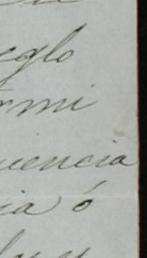 eglo
rmi
uencia
ia ó